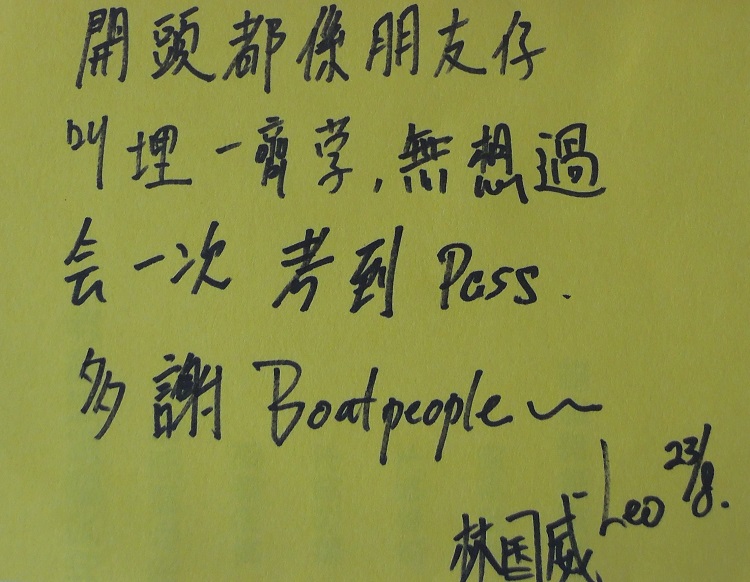 開頭都係朋友仔
叫埋一齊学,無想過
会一次 考到 Pass.
多謝 Boatpeople~
Leo 23/8.
林国威